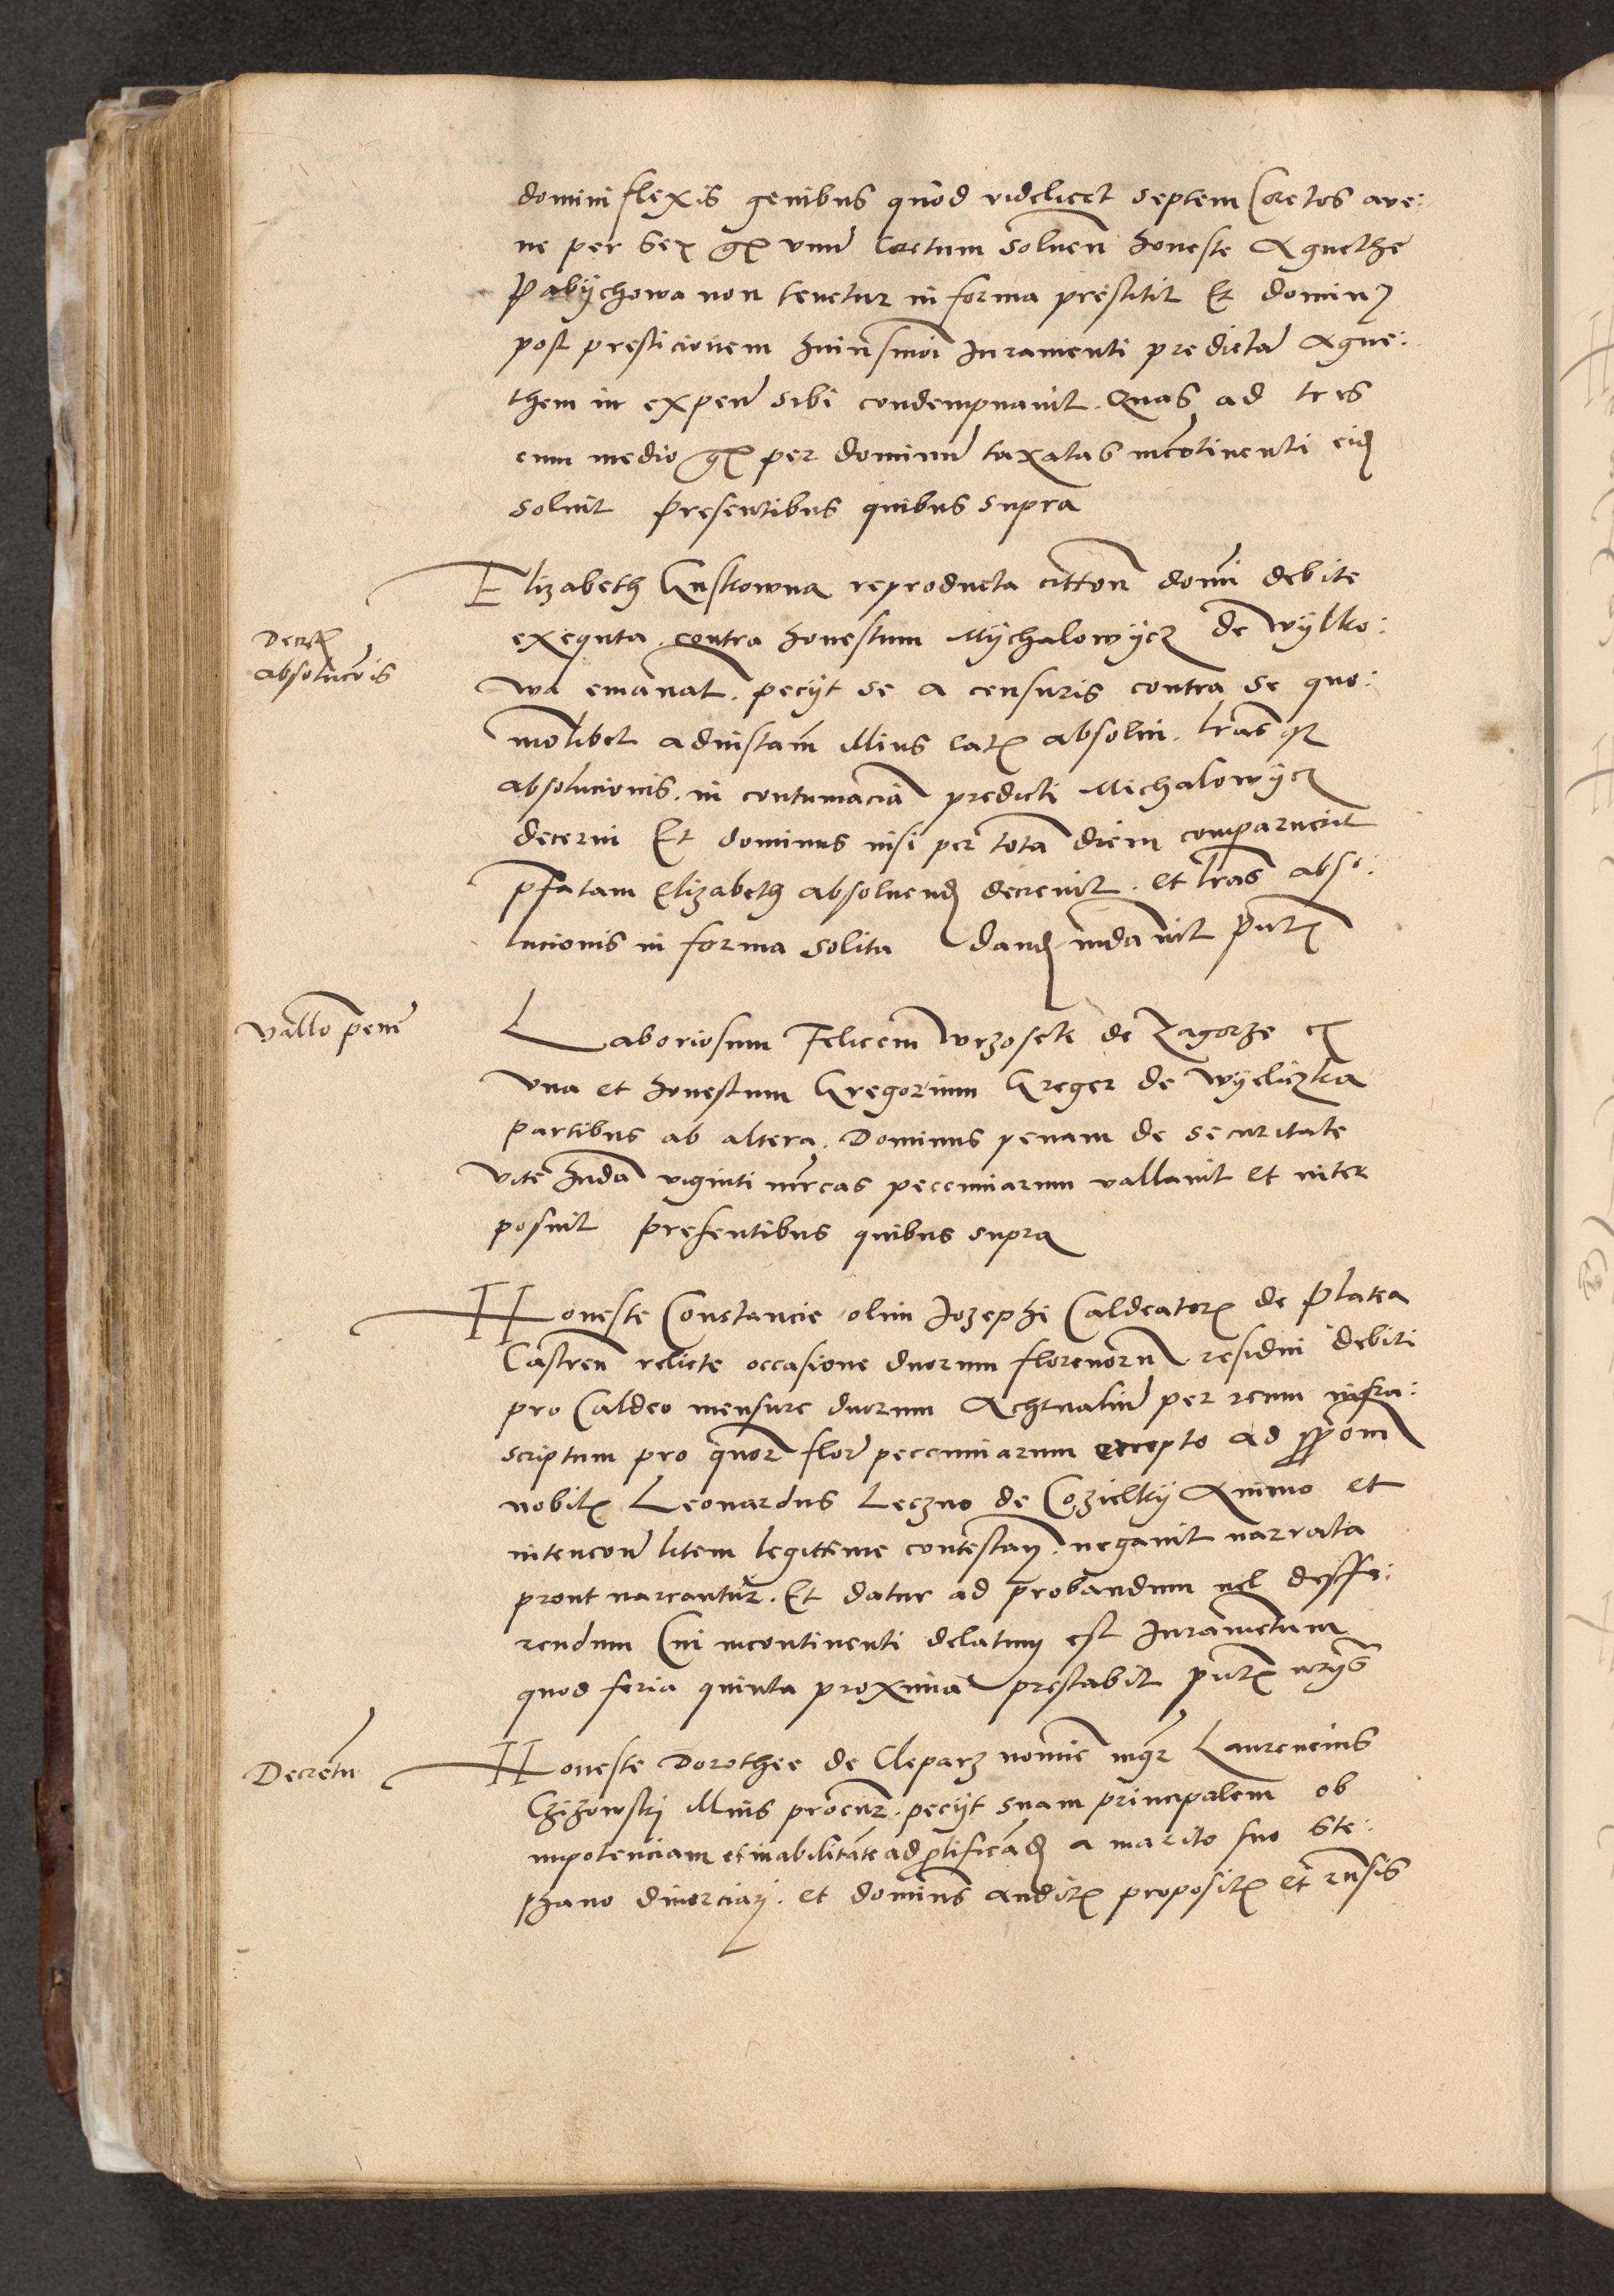 domini flexis genibus quod videlicet septem Coretos ave:
ne per sex gr unum Coretum solven honeste Agnethe
Pabychowa non tenetur in forma prestitit Et dominus
post presticionem huiusmoi Juramenti predictam Agne:
them in expen sibi condempnavit. Quas ad tres
cum medio gr per dominum taxatas incontinenti eid
solvit Presentibus quibus supra
Elizabeth Guskowna reproducta citton domi debite
Decr
absolucois
exequta. contra honestum Mychalowycz de Wylko:
wa emanat. peciit se a censuris contra se quo:
molibet ad instam illius lat absolvi. lras q
absolucionis. in contumaciam predicti Michalowycz
decerni Et dominus nisi per totam diem comparuerit
pfatam Elizabeth absolvend decrevit. et lras abso:
lucionis in forma solita dand mdavit pntt
Vallo pene
Laboriosum Felicem Wrzosek de Zagorze ex
una et honestum Gregorium Greger de Wyeliczka
partibus ab altera. Dominus penam de securitate
vite hnda viginti mrcas peccuniarum vallavit et inter
posuit presentibus quibus supra
Honeste Constancie olim Jozephi Caldeator de Platea
Castren relicte occasione duorum florenorum residui debiti
pro Caldeo mensure duorum Achtualium per reum infra:
scriptum pro quor flor peccuniarum recepto ad ppom
nobil Leonardus Leczno de Cozielky Animo et
intencon litem legittime contestan. negavit narrata
prout narrantur. Et datur ad probandum vel deffe:
rendum Cui incontinenti delatum est Juramentum
quod feria quinta proxima prestabit pntt utriis
Decretu
Honeste Dorothee de Cleparz nomine mgr Laurencius
Czizowski illius procur. peciit suam principalem ob
impotenciam et inabilitate ad plificand a marito suo Ste:
phano divorciari. et dominus audit proposit et rnsis